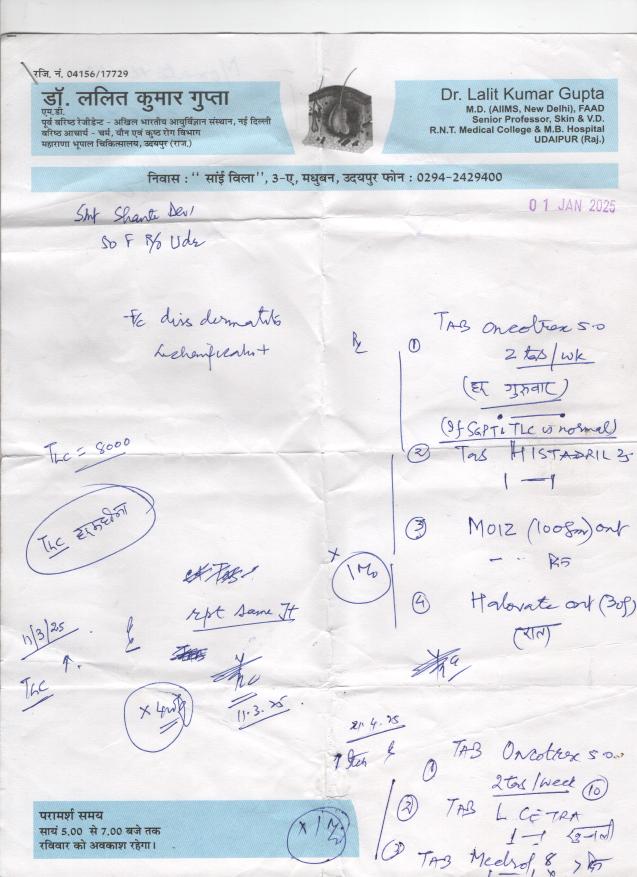 रजि. नं. 04156/17729
डॉ. ललित कुमार गुप्ता
एम.डी.
पूर्व वरिष्ठ रेजीडेन्ट - अखिल भारतीय आयुर्विज्ञान संस्थान, नई दिल्ली
वरिष्ठ आचार्य - चर्म, यौन एवं कुष्ठ रोग विभाग
महाराणा भूपाल चिकित्सालय, उदयपुर (राज.)
Dr. Lalit Kumar Gupta
M.D. (AIIMS, New Delhi), FAAD
Senior Professor, Skin & V.D.
R.N.T. Medical College & M.B. Hospital
UDAIPUR (Raj.)
निवास : " सांई विला", 3-ए, मधुबन, उदयपुर फोन : 0294-2429400
01 JAN 2025
Smt Shanti Devi
50 F R/o Udr
diss dermatitis
TLC = 8000
TLC
Rx
① TAB Oncotrex 5.0
2 tab/wk
(हर गुरुवार)
(If SGPT & TLC is normal)
② Tab HISTADRIL
1—1
③ MOIZ (100gm) ont
④ Halovate ont (30g)
(रात)
x 1 Mo
11/3/25
rpt same
TLC
11.3.25
21.4.25
① TAB Oncotrex 5.0
2 tab/week ⑩
② TAB L CETRA
1—1 खुजली
③ TAB Medrol 8
x 1 Mo
परामर्श समय
सायं 5.00 से 7.00 बजे तक
रविवार को अवकाश रहेगा।